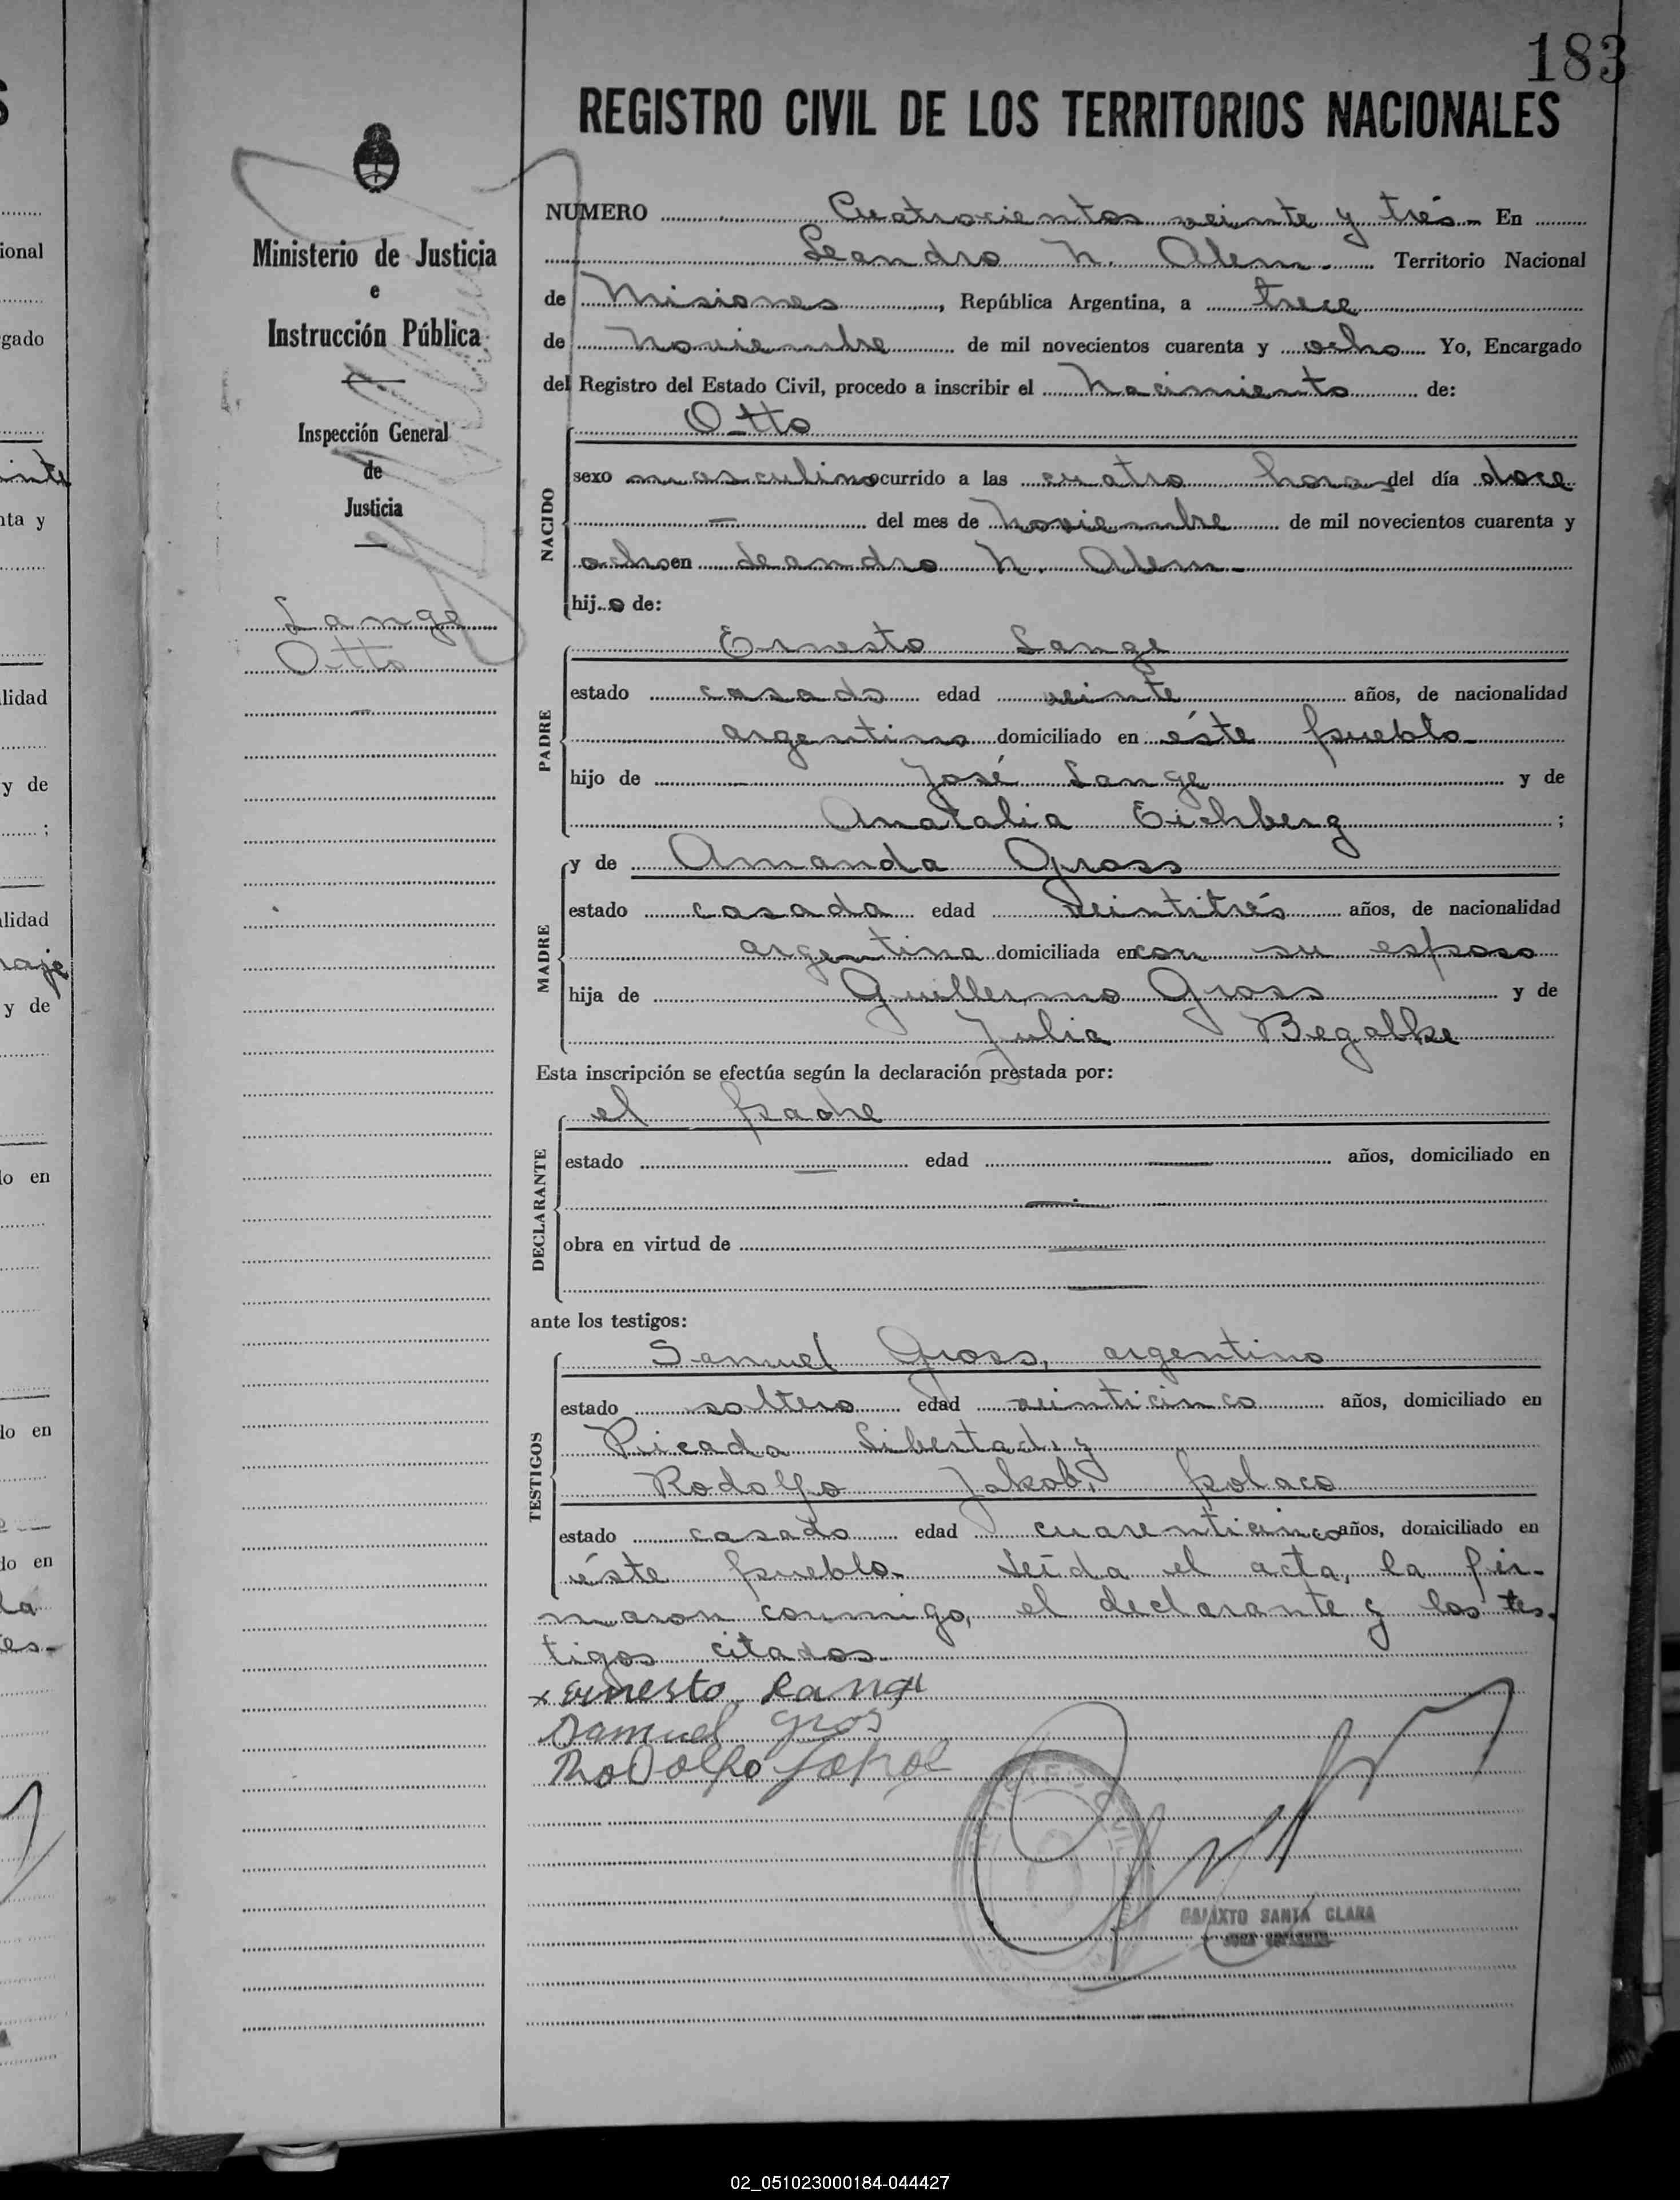 183
REGISTRO CIVIL DE LOS TERRITORIOS NACIONALES
Ministerio de Justicia
e
Instrucción Pública
Inspección General
de
Justicia
Lange
Otto
NUMERO Cuatrocientos veinte y trés - En
Leandro N. Alem - Territorio Nacional
de Misiones, República Argentina, a trece
de noviembre de mil novecientos cuarenta y ocho Yo, Encargado
del Registro del Estado Civil, procedo a inscribir el nacimiento de:
Otto
NACIDO
sexo masculino ocurrido a las cuatro horas del día doce
— del mes de noviembre de mil novecientos cuarenta y
ocho en Leandro N. Alem -
hij o de:
Ernesto Lange
PADRE
estado casado edad veinte años, de nacionalidad
argentino domiciliado en éste pueblo
hijo de José Lange y de
Anatalia Eichberg ;
y de Amanda Gross
MADRE
estado casada edad veintitrés años, de nacionalidad
argentina domiciliada en con su esposo
hija de Guillermo Gross y de
Julia Begalke
Esta inscripción se efectúa según la declaración prestada por:
el padre
DECLARANTE
estado — edad — años, domiciliado en
—
obra en virtud de —
—
ante los testigos:
Samuel Gross, argentino
TESTIGOS
estado soltero edad veinticinco años, domiciliado en
Picada Libertad y
Rodolfo Jakob, polaco
estado casado edad cuarenticinco años, domiciliado en
éste pueblo. Leída el acta, la fir-
maron conmigo, el declarante y los tes-
tigos citados.
x Ernesto Lange
Samuel Gros
Rodolfo
CALIXTO SANTA CLARA
02_051023000184-044427